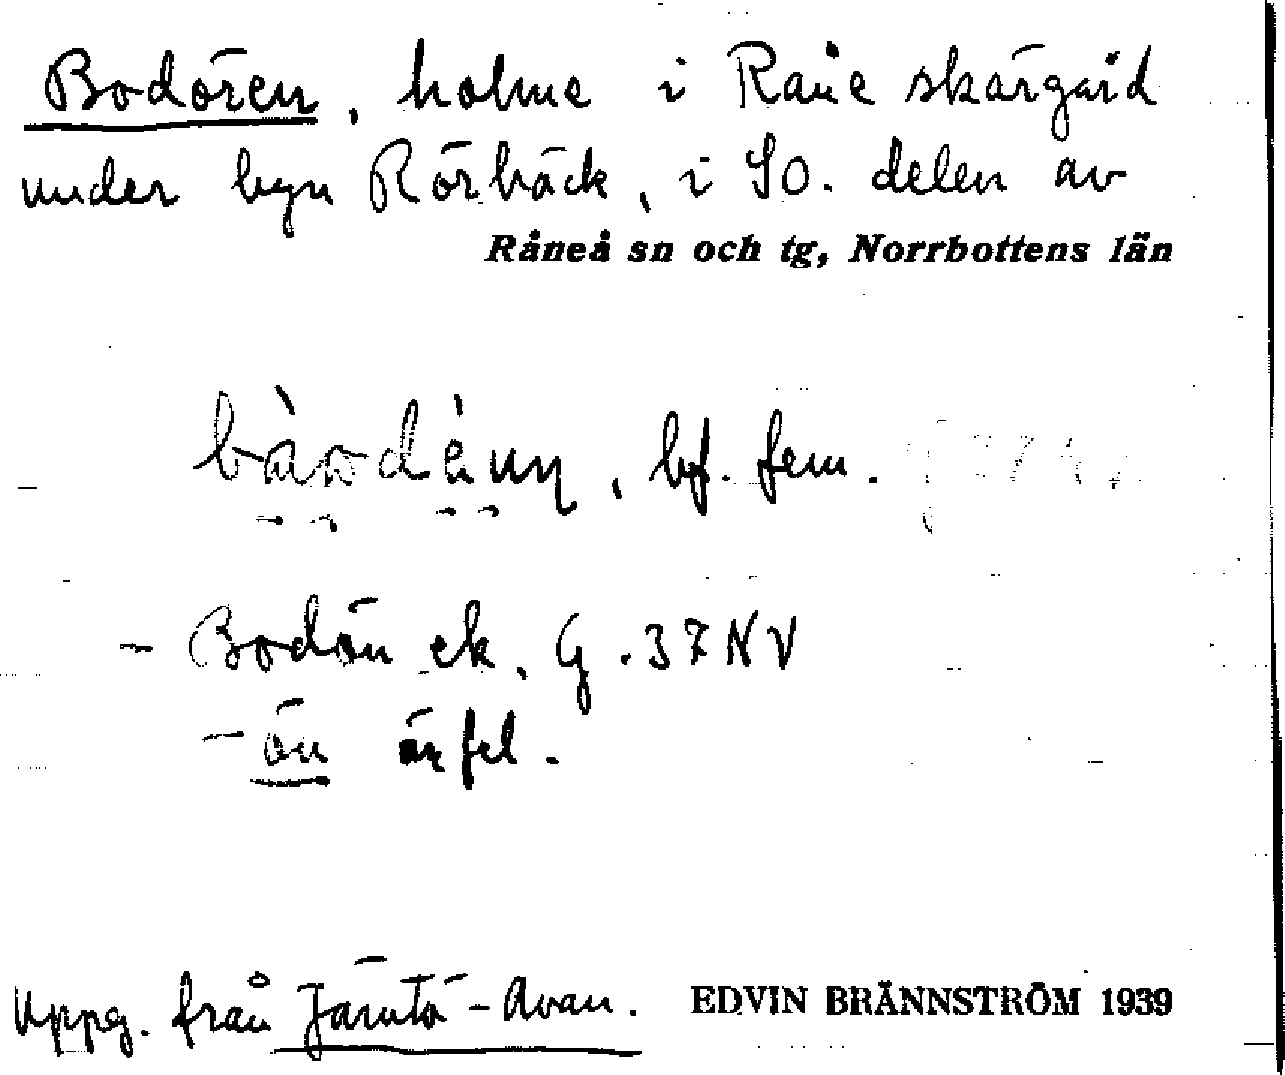 Bodören, holme i Råne skärgård
under byn Rörbäck, i SO. delen av
Råneå sn och tg, Norrbottens län
bf. fem.
- Bodön ek. G. 37 NV
- ön är fel.
Uppg. från Jämtö-Avan. EDVIN BRÄNNSTRÖM 1939